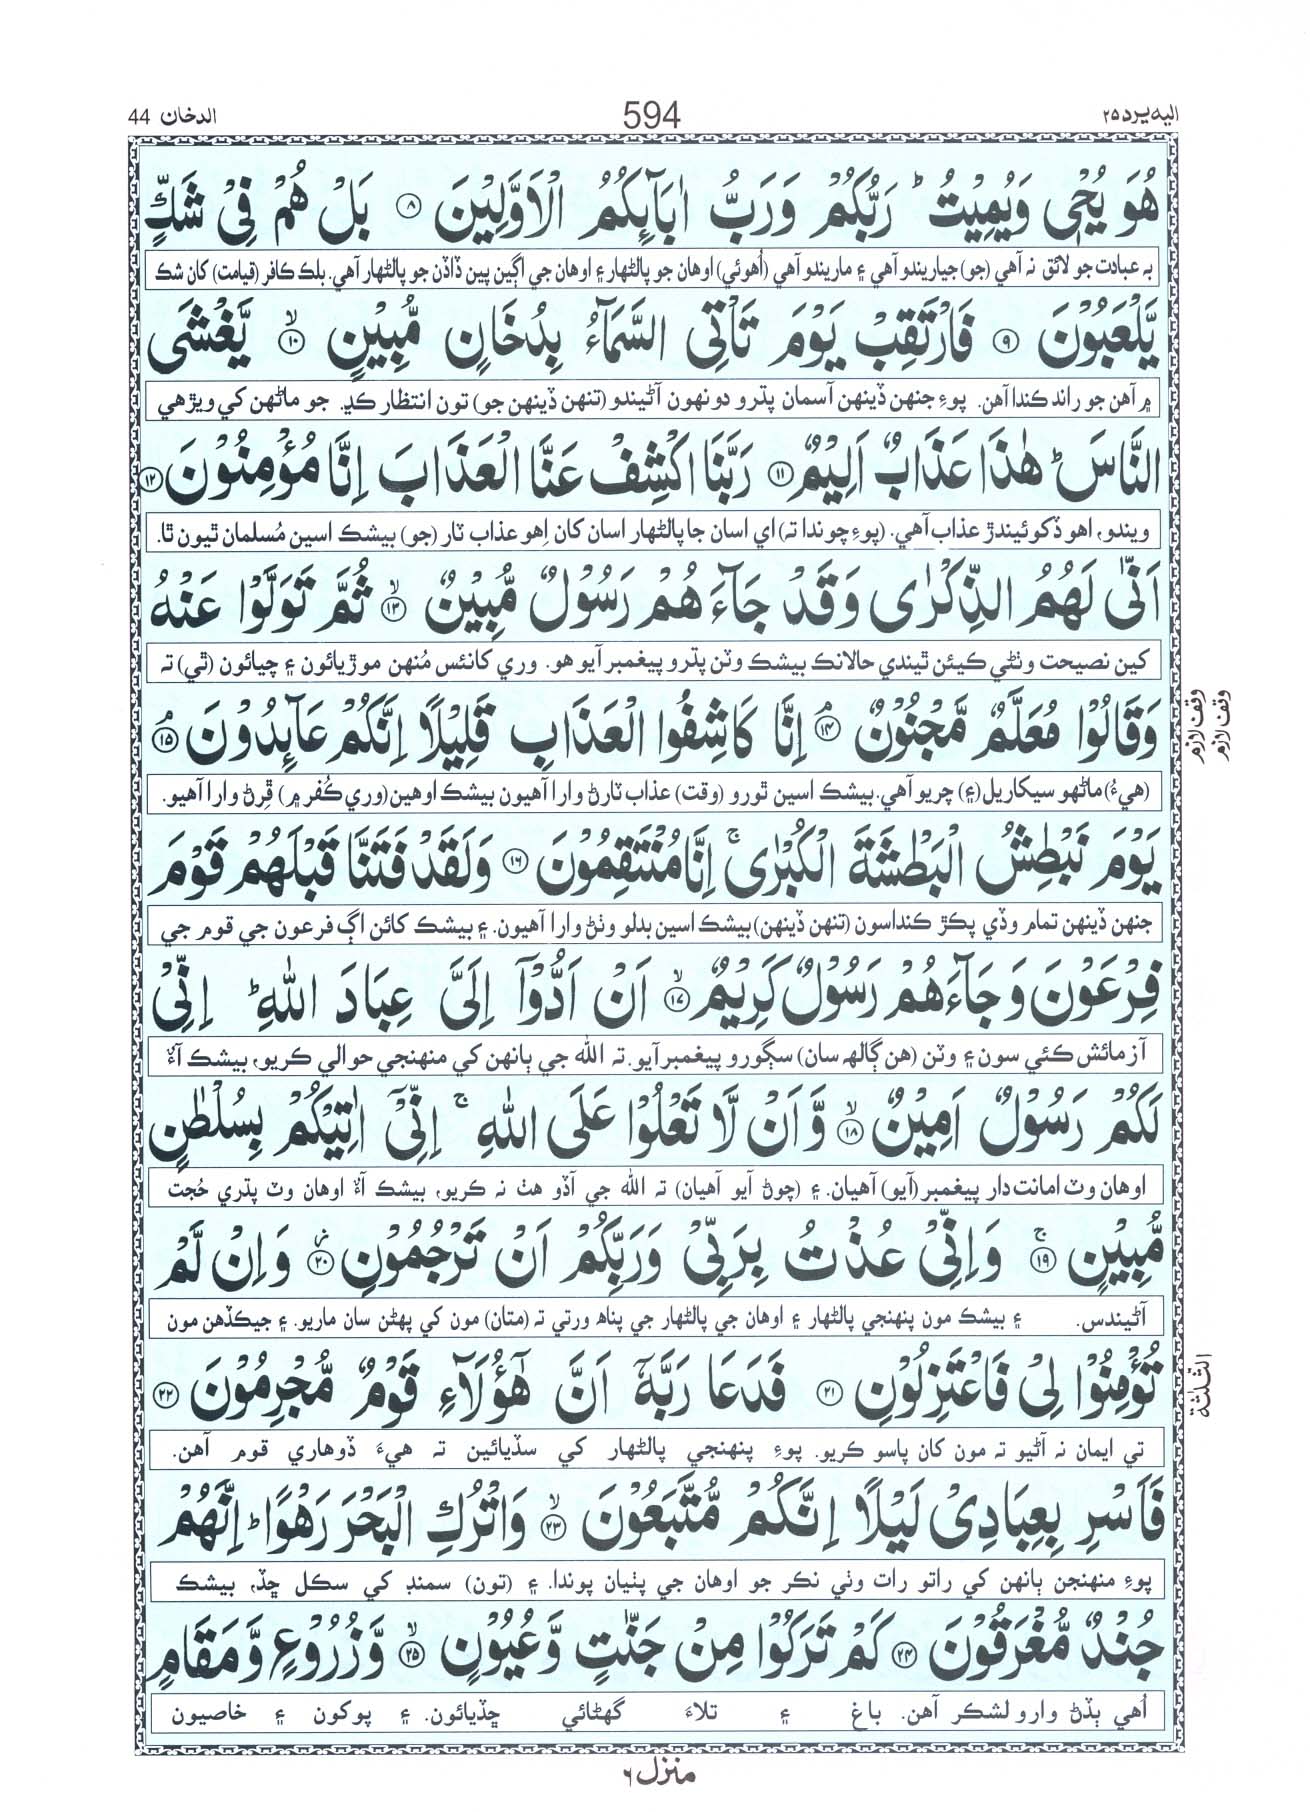 اليه يرد ٢٥
594
الدخان 44
هُوَ يُحْيٖ وَيُمِيْتُ ؕ رَبُّكُمْ وَرَبُّ اٰبَآىِٕكُمُ الْاَوَّلِيْنَ ۝٨ بَلْ هُمْ فِيْ شَكٍّ
به عبادت جو لائق نه آهي (جو) جياريندو آهي ۽ ماريندو آهي (اُهوئي) اوهان جو پالڻهار ۽ اوهان جي اڳين پين ڏاڏن جو پالڻهار آهي. بلڪ ڪافر (قيامت) کان شڪ
يَّلْعَبُوْنَ ۝٩ فَارْتَقِبْ يَوْمَ تَاْتِي السَّمَآءُ بِدُخَانٍ مُّبِيْنٍ ۝١٠ۙ يَّغْشَى
۾ آهن جو راند ڪندا آهن. پوءِ جنهن ڏينهن آسمان پترو دونهون آڻيندو (تنهن ڏينهن جو) تون انتظار ڪر. جو ماڻهن کي ويڙهي
النَّاسَ ؕ هٰذَا عَذَابٌ اَلِيْمٌ ۝١١ رَبَّنَا اكْشِفْ عَنَّا الْعَذَابَ اِنَّا مُؤْمِنُوْنَ ۝١٢
ويندو، اهو ڏکوئيندڙ عذاب آهي. (پوءِ چوندا ته) اي اسان جا پالڻهار اسان کان اِهو عذاب ٽار (جو) بيشڪ اسين مُسلمان ٿيون ٿا.
اَنّٰى لَهُمُ الذِّكْرٰى وَقَدْ جَآءَهُمْ رَسُوْلٌ مُّبِيْنٌ ۝١٣ۙ ثُمَّ تَوَلَّوْا عَنْهُ
کين نصيحت وٺڻي ڪيئن ٿيندي حالانڪ بيشڪ وٽن پترو پيغمبر آيو هو. وري کانئس مُنهن موڙيائون ۽ چيائون (ٿي) ته
وَقَالُوْا مُعَلَّمٌ مَّجْنُوْنٌ ۝١٤ۘ اِنَّا كَاشِفُوا الْعَذَابِ قَلِيْلًا اِنَّكُمْ عَآىِٕدُوْنَ ۝١٥ۘ
وقف لازم
وقف لازم
(هيءُ) ماڻهو سيکاريل (۽) چريو آهي. بيشڪ اسين ٿورو (وقت) عذاب ٽارڻ وارا آهيون بيشڪ اوهين (وري ڪُفر ۾) ڦِرڻ وارا آهيو.
يَوْمَ نَبْطِشُ الْبَطْشَةَ الْكُبْرٰى ۚ اِنَّا مُنْتَقِمُوْنَ ۝١٦ وَلَقَدْ فَتَنَّا قَبْلَهُمْ قَوْمَ
جنهن ڏينهن تمام وڏي پڪڙ ڪنداسون (تنهن ڏينهن) بيشڪ اسين بدلو وٺڻ وارا آهيون. ۽ بيشڪ کائن اڳ فرعون جي قوم جي
فِرْعَوْنَ وَجَآءَهُمْ رَسُوْلٌ كَرِيْمٌ ۝١٧ۙ اَنْ اَدُّوْٓا اِلَيَّ عِبَادَ اللّٰهِ ؕ اِنِّيْ
آزمائش ڪئي سون ۽ وٽن (هن ڳالهه سان) سڳورو پيغمبر آيو. ته الله جي ٻانهن کي منهنجي حوالي ڪريو، بيشڪ آءٌ
لَكُمْ رَسُوْلٌ اَمِيْنٌ ۝١٨ۙ وَّاَنْ لَّا تَعْلُوْا عَلَى اللّٰهِ ۚ اِنِّيْٓ اٰتِيْكُمْ بِسُلْطٰنٍ
اوهان وٽ امانت دار پيغمبر (آيو) آهيان. ۽ (چوڻ آيو آهيان) ته الله جي آڏو هٺ نه ڪريو، بيشڪ آءٌ اوهان وٽ پڌري حُجت
مُّبِيْنٍ ۝١٩ۚ وَاِنِّيْ عُذْتُ بِرَبِّيْ وَرَبِّكُمْ اَنْ تَرْجُمُوْنِ ۝٢٠ؗ وَاِنْ لَّمْ
آڻيندس. ۽ بيشڪ مون پنهنجي پالڻهار ۽ اوهان جي پالڻهار جي پناهه ورتي ته (متان) مون کي پهڻن سان ماريو. ۽ جيڪڏهن مون
تُؤْمِنُوْا لِيْ فَاعْتَزِلُوْنِ ۝٢١ فَدَعَا رَبَّهٗٓ اَنَّ هٰٓؤُلَآءِ قَوْمٌ مُّجْرِمُوْنَ ۝٢٢
الثلثة
تي ايمان نه آڻيو ته مون کان پاسو ڪريو. پوءِ پنهنجي پالڻهار کي سڏيائين ته هيءَ ڏوهاري قوم آهن.
فَاَسْرِ بِعِبَادِيْ لَيْلًا اِنَّكُمْ مُّتَّبَعُوْنَ ۝٢٣ۙ وَاتْرُكِ الْبَحْرَ رَهْوًا ؕ اِنَّهُمْ
پوءِ منهنجن ٻانهن کي راتو رات وٺي نڪر جو اوهان جي پٺيان پوندا. ۽ (تون) سمنڊ کي سڪل ڇڏ، بيشڪ
جُنْدٌ مُّغْرَقُوْنَ ۝٢٤ كَمْ تَرَكُوْا مِنْ جَنّٰتٍ وَّعُيُوْنٍ ۝٢٥ۙ وَّزُرُوْعٍ وَّمَقَامٍ
اُهي ٻڏڻ وارو لشڪر آهن. باغ ۽ تلاءَ گهڻائي ڇڏيائون. ۽ پوکون ۽ خاصيون
منزل ٦